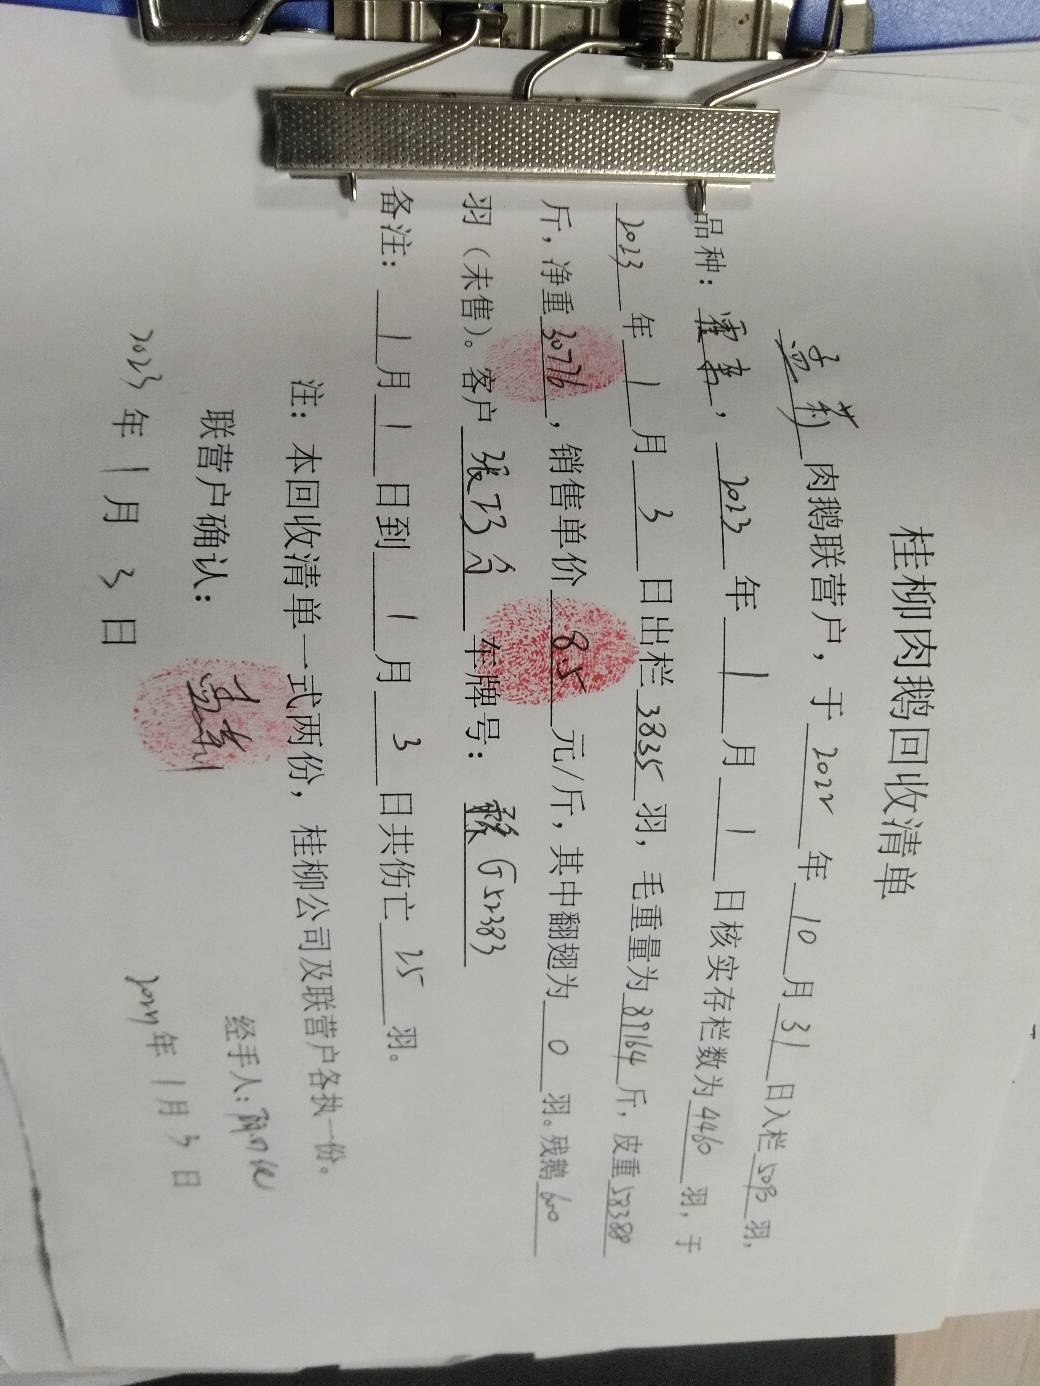 桂柳肉鹅回收清单
肉鹅联营户，于2022年10月31日入栏羽，
品种：霍寿，2023年1月1日核实存栏数为4460羽，于
2023年1月3日出栏3835羽，毛重量为89164斤，皮重58388
斤，净重30776，销售单价8.5元/斤，其中翻翅为0羽。残鹅600
羽（未售）。客户张巧台车牌号：G52383
备注：1月1日到1月3日共伤亡25羽。
注：本回收清单一式两份，桂柳公司及联营户各执一份。
联营户确认：
经手人：
2023年1月3日
年1月3日